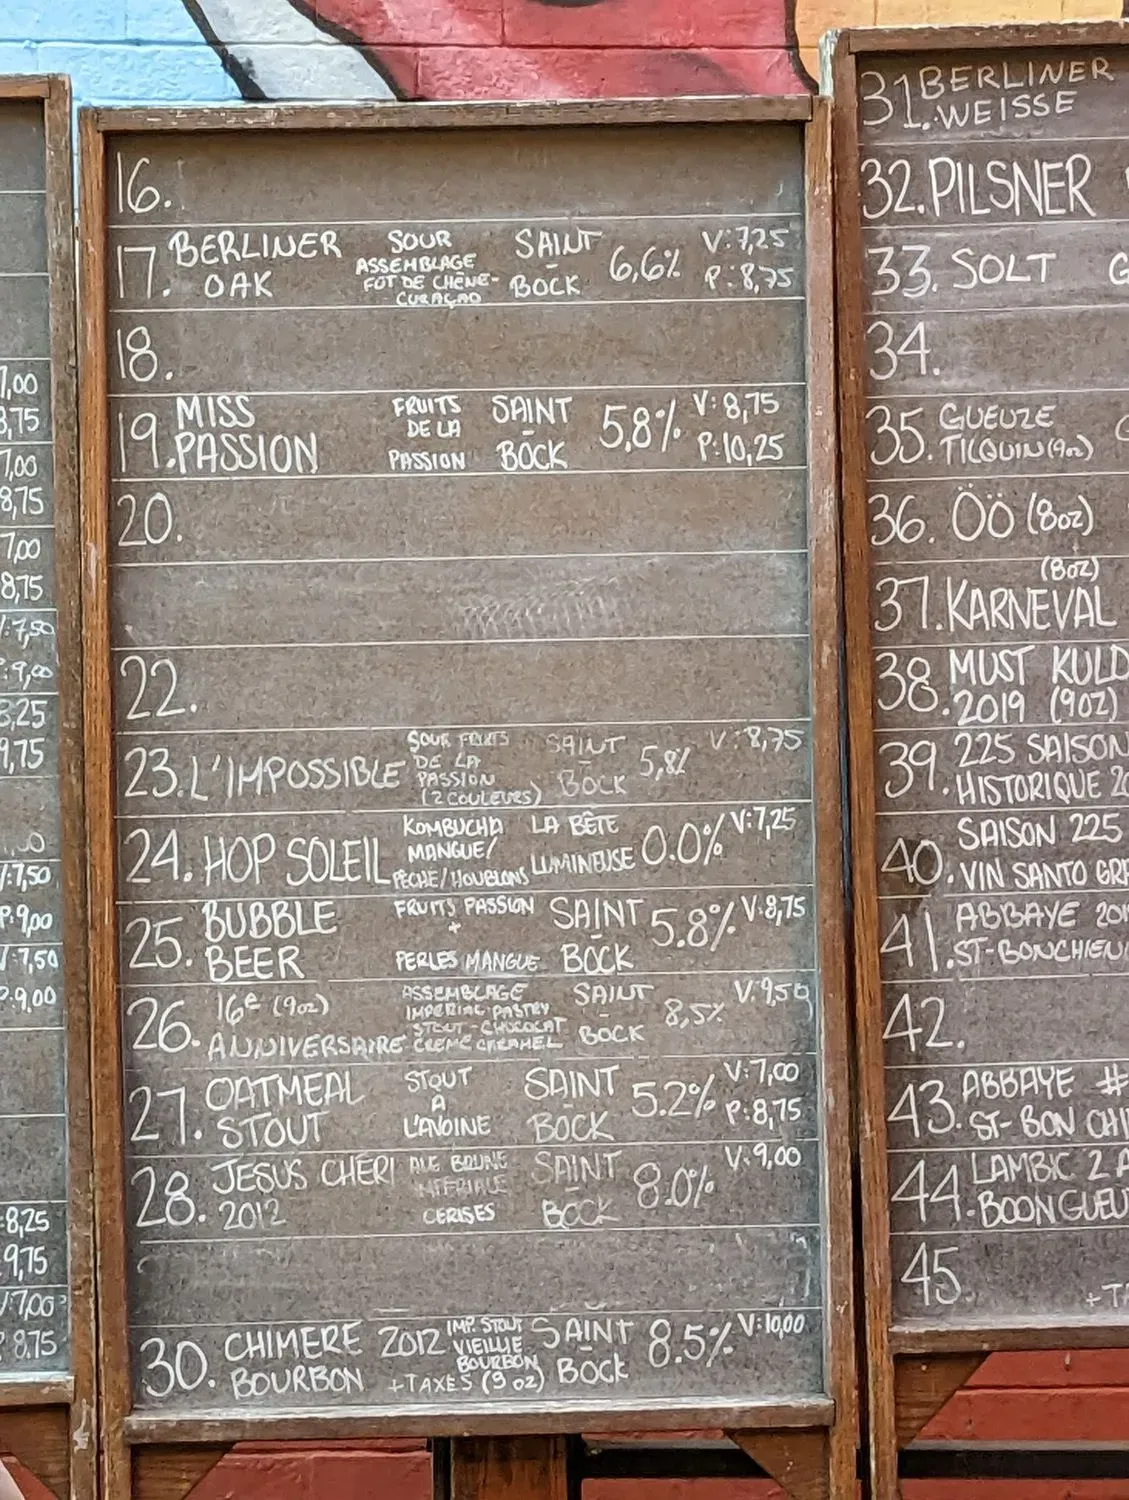 7,00
8,75
7,00
8,75
7,00
8,75
V:7,50
P:9,00
8,25
9,75
V:7,50
P:9,00
V:7,50
P:9,00
8,25
9,75
V:7,00
8.75
16.
17. BERLINER OAK
SOUR
ASSEMBLAGE
FÛT DE CHÊNE-
CURAÇAO
SAINT BOCK
6,6%
V:7,25
P:8,75
18.
19. MISS PASSION
FRUITS
DE LA
PASSION
SAINT BOCK
5,8%
V:8,75
P:10,25
20.
22.
23. L'IMPOSSIBLE
SOUR FRUITS
DE LA
PASSION
(2 COULEURS)
SAINT BOCK
5,8%
V:8,75
24. HOP SOLEIL
KOMBUCHA
MANGUE/
PÊCHE/HOUBLONS
LA BÊTE LUMINEUSE
0.0%
V:7,25
25. BUBBLE BEER
FRUITS PASSION
+
PERLES MANGUE
SAINT BOCK
5.8%
V:8,75
26. 16e (9oz) ANNIVERSAIRE
ASSEMBLAGE
IMPERIAL PASTRY
STOUT-CHOCOCAT
CREME CARAMEL
SAINT BOCK
8,5%
V:9,50
27. OATMEAL STOUT
STOUT
A
L'AVOINE
SAINT BOCK
5.2%
V:7,00
P:8,75
28. JESUS CHERI 2012
ALE BRUNE
IMPERIALE
CERISES
SAINT BOCK
8.0%
V:9,00
30. CHIMERE BOURBON
2012
IMP. STOUT
VIEILLIE
BOURBON
+TAXES (9 oz)
SAINT BOCK
8.5%
V:10,00
31. BERLINER WEISSE
32. PILSNER
33. SOLT G
34.
35. GUEUZE TILQUIN (9oz)
36. ÖÖ (8oz)
37. KARNEVAL (8oz)
38. MUST KULD 2019 (9OZ)
39. 225 SAISON HISTORIQUE 20
40. SAISON 225 VIN SANTO GR
41. ABBAYE 201 ST-BONCHIEN
42.
43. ABBAYE # ST-BON CHI
44. LAMBIC 2 A BOON GUEU
45.
+T